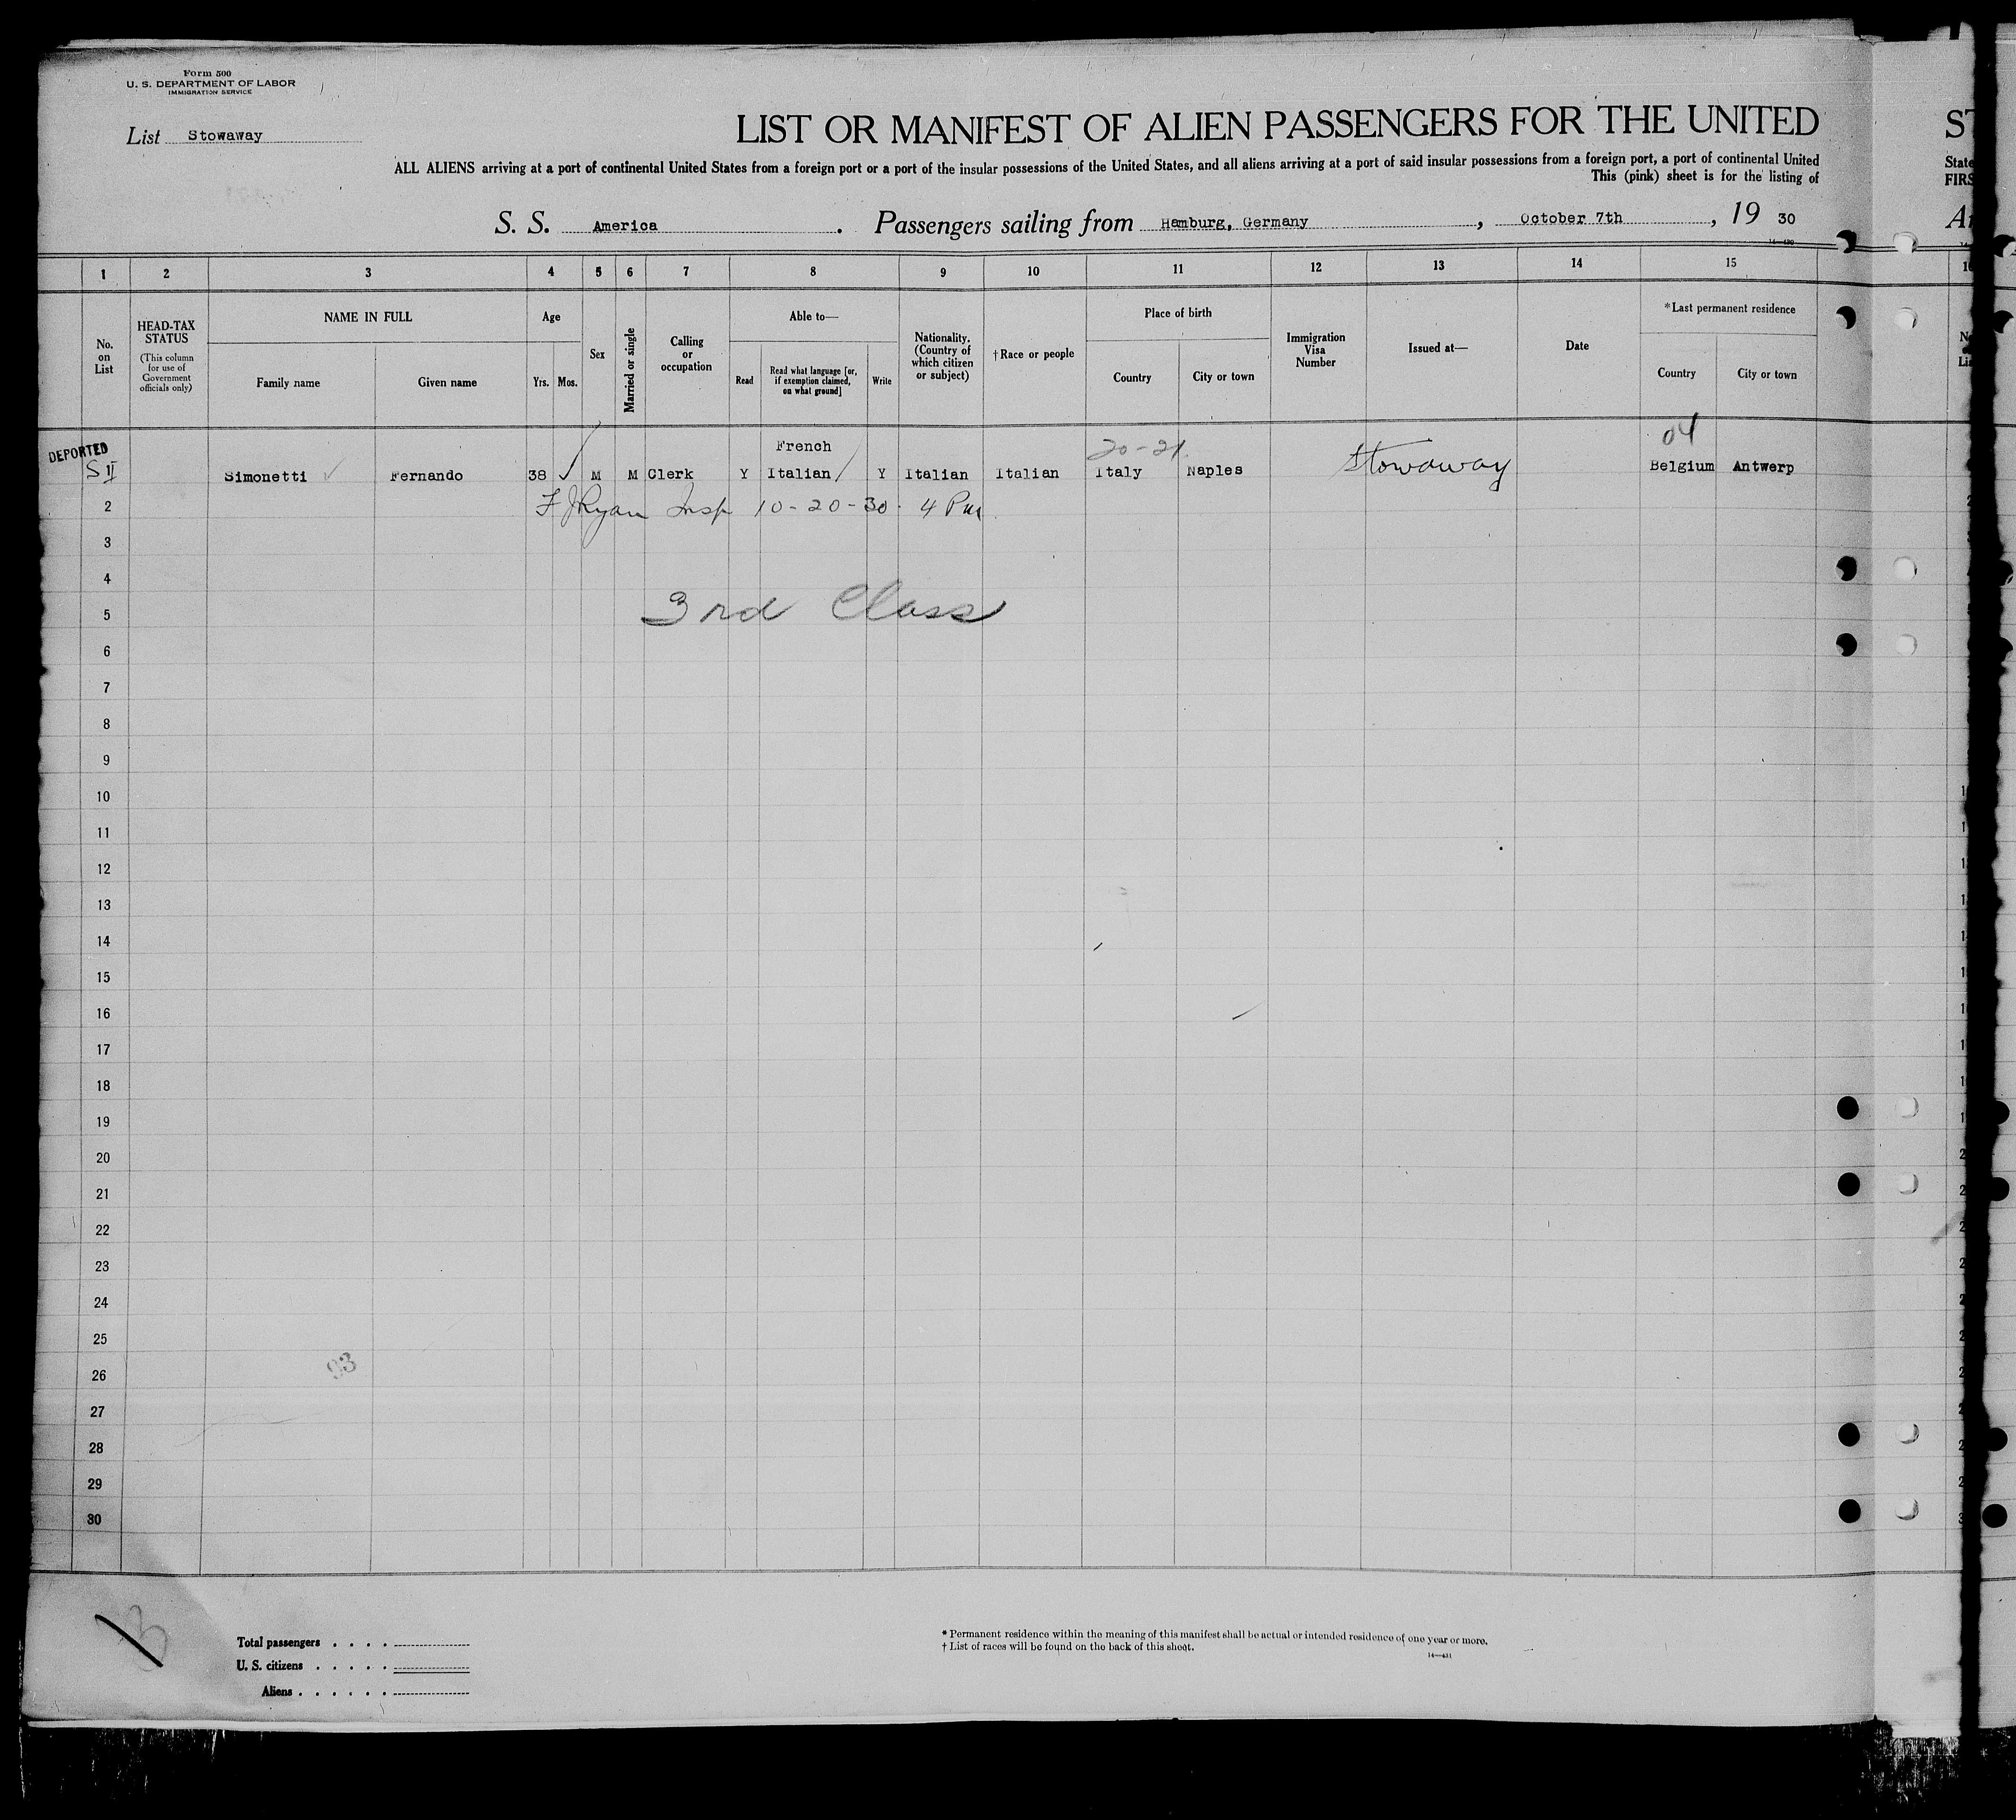 Form 500
U. S. DEPARTMENT OF LABOR
IMMIGRATION SERVICE
List Stowaway
LIST OR MANIFEST OF ALIEN PASSENGERS FOR THE UNITED
ALL ALIENS arriving at a port of continental United States from a foreign port or a port of the insular possessions of the United States, and all aliens arriving at a port of said insular possessions from a foreign port, a port of continental United
This (pink) sheet is for the listing of
S. S. America . Passengers sailing from Hamburg, Germany , October 7th , 19 30
ST
State
FIRS
1 2 3 4 5 6 7 8 9 10 11 12 13 14 15
No. on List
HEAD-TAX STATUS
(This column for use of Government officials only)
NAME IN FULL
Family name
Given name
Age
Yrs. Mos.
Sex
Married or single
Calling or occupation
Able to—
Read
Read what language [or, if exemption claimed, on what ground]
Write
Nationality. (Country of which citizen or subject)
†Race or people
Place of birth
Country
City or town
Immigration Visa Number
Issued at—
Date
*Last permanent residence
Country
City or town
DEPORTED
French
20-21
04
Simonetti Fernando 38 M M Clerk Y Italian Y Italian Italian Italy Naples Stowaway Belgium Antwerp
2
F J Ryan Insp 10-20-30 4 Pm
3
4
3rd Class
5
6
7
8
9
10
11
12
13
14
15
16
17
18
19
20
21
22
23
24
25
93
26
27
28
29
30
Total passengers . . . .
U. S. citizens . . . . .
Aliens . . . . . .
* Permanent residence within the meaning of this manifest shall be actual or intended residence of one year or more.
† List of races will be found on the back of this sheet.